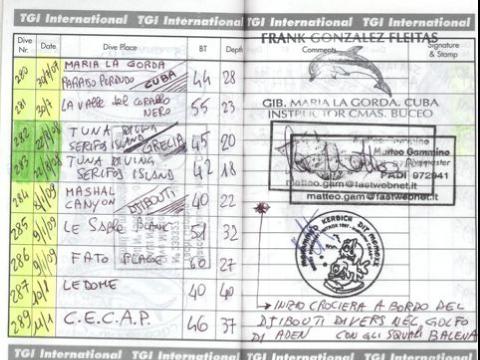 TGI International TGI International TGI International TGI International
Dive Nr. Date Dive Place BT Depth Comments Signature & Stamp
FRANK GONZALEZ FLEITAS
280 MARIA LA GORDA
PARAISO PERDIDO CUBA 44 28
GIB. MARIA LA GORDA. CUBA
INSTRUCTOR CMAS. BUCEO
281 30/7 LA VALLE DEL CORALLO
NERO 55 23
282 TUNA DIVING
SERIFOS ISLAND GRECIA 45 20
283 TUNA DIVING
SERIFOS ISLAND 42 18
Matteo Gammino
PADI 972941
matteo.gam@fastwebnet.it
matteo.gam@fastwebnet.it
284 8/1/09 MASHAL
CANYON DJIBOUTI 40 22
285 9/1/09 LE SABLE BLANC 51 32
286 9/1/09 FATO PLAGE 60 27
287 LE DOME 40 40
289 11/1 C.E.C.A.P. 46 37
→ INIZIO CROCIERA A BORDO DEL
DJIBOUTI DIVERS NEL GOLFO
DI ADEN CON GLI SQUALI BALENA
TGI International TGI International TGI International TGI International